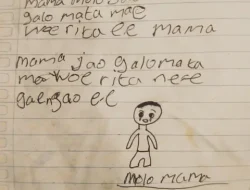 mama molo
galo mata mae
woe rita ee mama
mama jao galomata
mo woe rita nefe
gaengao ee
molo mama